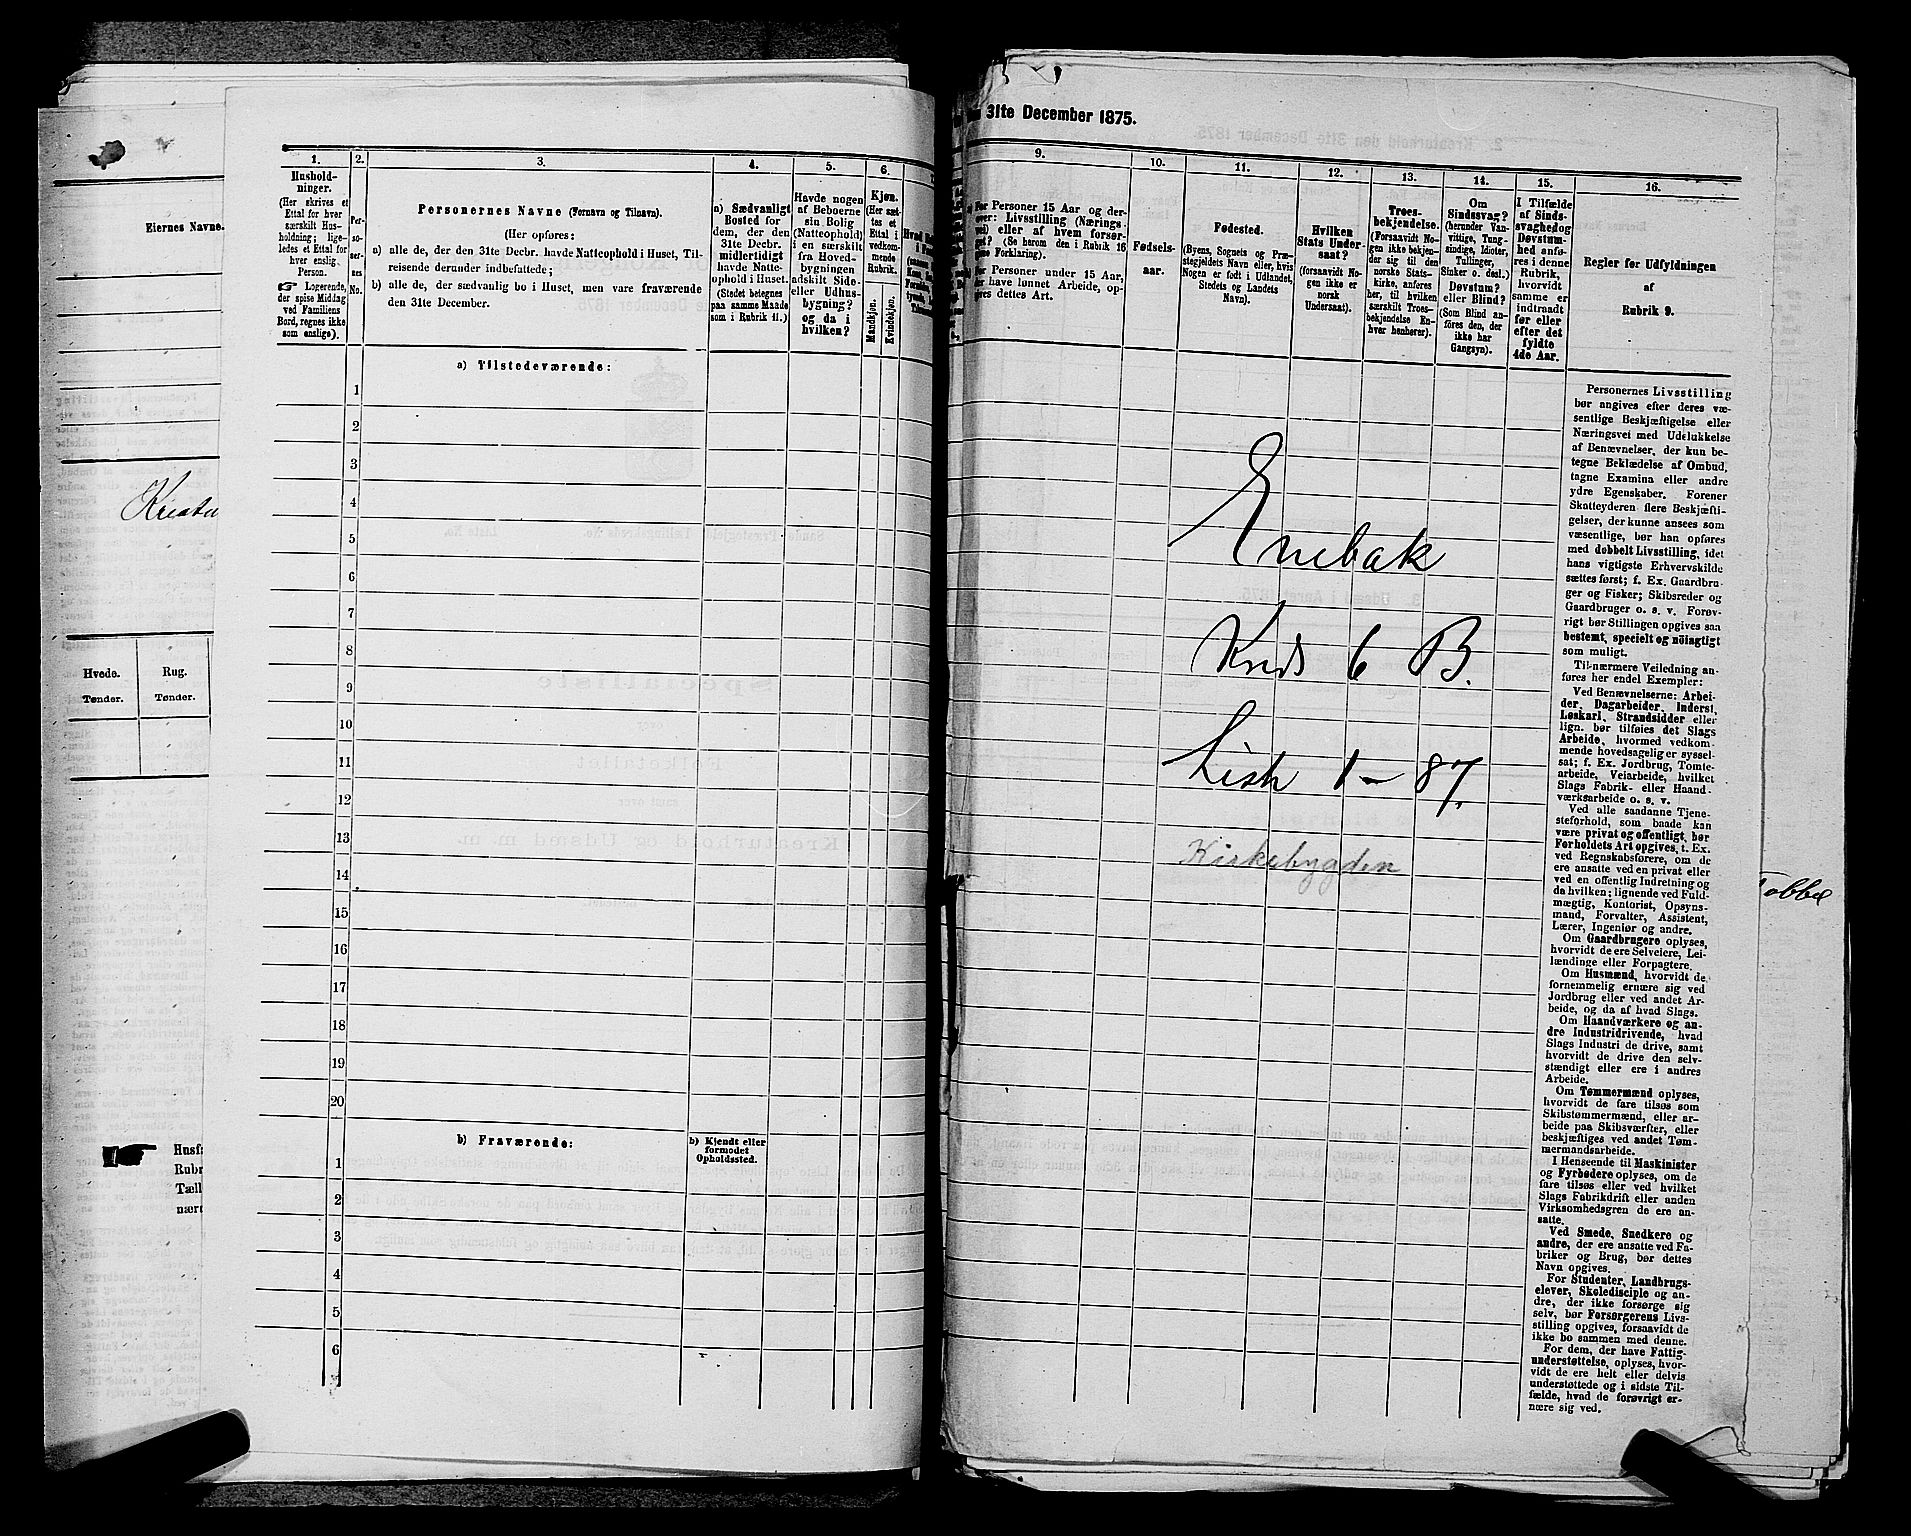 Eiernes Navne.
Hvede.
Tønder.
Rug.
Tønder.
1.
Husholdninger.
(Her skrives et
Ettal for hver
særskilt Hus-
holdning; lige-
ledes et Ettal for
hver enslig
Person.
☞ Logerende,
der spise Middag
ved Familiens
Bord, regnes ikke
som enslige).
2.
Per-
so-
ner-
nes
No.
3.
Personernes Navne (Fornavn og Tilnavn).
(Her opføres:
a) alle de, der den 31te Decbr. havde Natteophold i Huset, Til-
reisende derunder indbefattede;
b) alle de, der sædvanlig bo i Huset, men vare fraværende
den 31te December.
4.
a) Sædvanligt
Bosted for
dem, der den
31te Decbr.
midlertidigt
havde Natte-
ophold i Huset.
(Stedet betegnes
paa samme Maade
som i Rubrik 11.)
5.
Havde nogen
af Beboerne
sin Bolig
(Natteophold)
i en særskilt
fra Hoved-
bygningen
adskilt Side-
eller Udhus-
bygning?
og da i
hvilken?
6.
Kjøn.
(Her sæt-
tes et
Ettal i
vedkom-
mende
Rubrik.
Mandkjøn.
Kvindekjøn.
a) Tilstedeværende:
1
2
3
4
5
6
7
8
9
10
11
12
13
14
15
16
17
18
19
20
b) Fraværende:
b) Kjendt eller
formodet
Opholdssted.
1
2
3
4
5
6
31te December 1875.
9.
For Personer 15 Aar og der-
over: Livsstilling (Nærings-
vei) eller af hvem forsør-
get? (Se herom den i Rubrik 16
givne Forklaring).
For Personer under 15 Aar,
der have lønnet Arbeide, op-
gives dettes Art.
10.
Fødsels-
aar.
11.
Fødested.
(Byens, Sognets og Præ-
stegjeldets Navn eller, hvis
Nogen er født i Udlandet,
Stedets og Landets
Navn).
12.
Hvilken
Stats Under-
saat?
(forsaavidt No-
gen ikke er
norsk
Undersaat).
13.
Troes-
bekjendelse.
(Forsaavidt No-
gen ikke bekjen-
der sig til den
norske Stats-
kirke, anføres
her, til hvilken
særskilt Troes-
bekjendelse En-
hver henhører).
14.
Om
Sindssvag?
(herunder Van-
vittige, Tung-
sindige, Idioter,
Tullinger,
Sinker o. desl.)
Døvstum?
eller Blind?
(Som Blind an-
føres den, der
ikke har
Gangsyn).
15.
I Tilfælde
af Sinds-
svaghed og
Døvstum-
hed anfø-
res i denne
Rubrik,
hvorvidt
samme er
indtraadt
før eller
efter det
fyldte
4de Aar.
16.
Regler før Udfyldningen
af
Rubrik 9.
Personernes Livsstilling
bør angives efter deres væ-
sentlige Beskjæftigelse eller
Næringsvei med Udelukkelse
af Benævnelser, der kun be-
tegne Beklædelse af Ombud,
tagne Examina eller andre
ydre Egenskaber. Forener
Skatteyderen flere Beskjæfti-
gelser, der kunne ansees som
væsentlige, bør han opføres
med dobbelt Livsstilling, idet
hans vigtigste Erhvervskilde
sættes først; f. Ex. Gaardbru-
ger og Fisker; Skibsreder og
Gaardbruger o. s. v. Forøv-
rigt bør Stillingen opgives saa
bestemt, specielt og nøiagtigt
som muligt.
Til nærmere Veiledning an-
føres her endel Exempler:
Ved Benævnelserne: Arbei-
der, Dagarbeider, Inderst,
Løskarl, Strandsidder eller
lign. bør tilføies det Slags
Arbeide, hvormed vedkom-
mende hovedsagelig er syssel-
sat; f. Ex. Jordbrug, Tomte-
arbeide, Veiarbeide, hvilket
Slags Fabrik- eller Haand-
værksarbeide o. s. v.
Ved alle saadanne Tjene-
steforhold, som baade kan
være privat og offentligt, bør
Forholdets Art opgives, t. Ex.
ved Regnskabsførere, om de
ere ansatte ved en privat eller
ved en offentlig Indretning og
da hvilken; lignende ved Fuld-
mægtig, Kontorist, Opsyns-
mand, Forvalter, Assistent,
Lærer, Ingeniør og andre.
Om Gaardbrugere oplyses,
hvorvidt de ere Selveiere, Lei-
lændinge eller Forpagtere.
Om Husmænd, hvorvidt de
fornemmelig ernære sig ved
Jordbrug eller ved andet Ar-
beide, og da af hvad Slags.
Om Haandværkere og an-
dre Industridrivende, hvad
Slags Industri de drive, samt
hvorvidt de drive den selv-
stændigt eller ere i andres
Arbeide.
Om Tømmermænd oplyses,
hvorvidt de fare tilsøs som
Skibstømmermænd, eller ar-
beide paa Skibsværfter, eller
beskjæftiges ved andet Tøm-
mermandsarbeide.
I Henseende til Maskinister
og Fyrbødere oplyses, om de
fare tilsøs eller ved hvilket
Slags Fabrikdrift eller anden
Virksomhedsgren de ere an-
satte.
Ved Smede, Snedkere og
andre, der ere ansatte ved Fa-
briker og Brug, bør dettes
Navn opgives.
For Studenter, Landbrugs-
elever, Skoledisciple og an-
dre, der ikke forsørge sig
selv, bør Forsørgerens Livs-
stilling opgives, forsaavidt de
ikke bo sammen med denne.
For dem, der have Fattig-
understøttelse, oplyses, hvor-
vidt de ere helt eller delvis
understøttede og i sidste Til-
fælde, hvad de forøvrigt er-
nære sig ved.
Enebak
Kreds 6 B.
Liste 1 – 87.
Kirkebygden